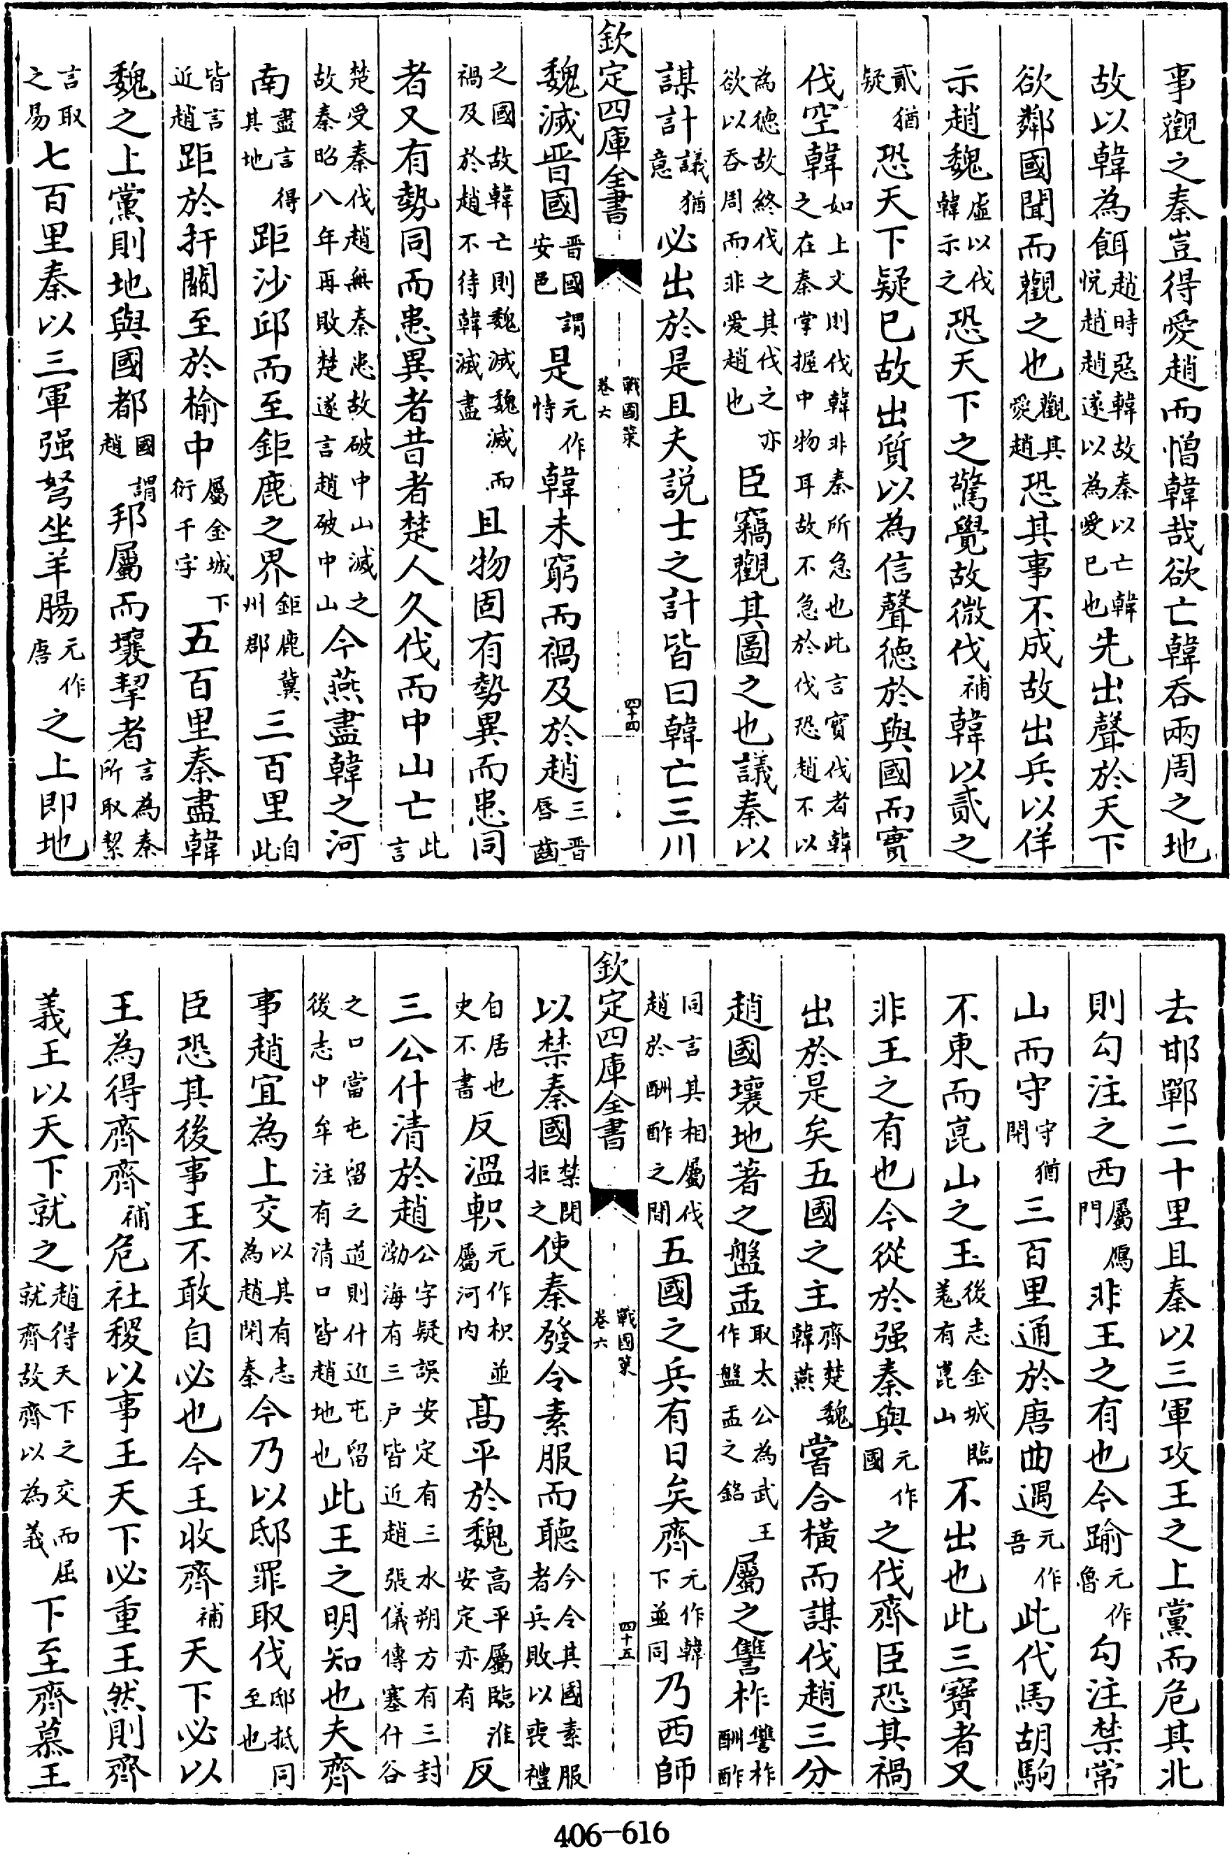 事觀之秦豈得愛趙而憎韓哉欲亡韓吞兩周之地
故以韓為餌趙時惡韓故秦以亡韓悦趙趙遂以為愛已也先出聲於天下
欲鄰國聞而觀之也觀其愛趙恐其事不成故出兵以佯
示趙魏虚以伐韓示之恐天下之驚覺故微伐補韓以貳之
貳猶疑恐天下疑已故出質以為信聲德於與國而實
伐空韓如上文則伐韓非秦所急也此言實伐者韓之在秦掌握中物耳故不急於伐恐趙不以
為德故終伐之其伐之亦欲以吞周而非愛趙也臣竊觀其圖之也議秦以
謀計議猶意必出於是且夫説士之計皆曰韓亡三川
欽定四庫全書 戰國策 卷六 四十四
魏滅晉國晉國謂安邑是元作恃韓未窮而禍及於趙三晉脣齒
之國故韓亡則魏滅魏滅而禍及於趙不待韓滅盡且物固有勢異而患同
者又有勢同而患異者昔者楚人久伐而中山亡此言
楚受秦伐趙無秦患故破中山滅之故秦昭八年再敗楚遂言趙破中山今燕盡韓之河
南盡言得其地距沙邱而至鉅鹿之界鉅鹿冀州郡三百里自此
皆言近趙距於扞關至於榆中屬金城下衍千字五百里秦盡韓
魏之上黨則地與國都國謂趙邦屬而壤挈者言為秦所取挈
言取之易七百里秦以三軍强弩坐羊腸元作唐之上即地
去邯鄲二十里且秦以三軍攻王之上黨而危其北
則勾注之西屬鴈門非王之有也今踰元作魯勾注禁常
山而守守猶閉三百里通於唐曲遇元作吾此代馬胡駒
不東而崑山之玉後志金城臨羌有崑山不出也此三寶者又
非王之有也今從於强秦與元作國之伐齊臣恐其禍
出於是矣五國之主齊楚魏韓燕嘗合橫而謀伐趙三分
趙國壤地著之盤盂取太公為武王作盤盂之銘屬之讐柞讐柞酬酢
同言其相屬伐趙於酬酢之間五國之兵有日矣齊元作韓下並同乃西師
欽定四庫全書 戰國策 卷六 四十五
以禁秦國禁閉拒之使秦發令素服而聽今令其國素服者兵敗以喪禮
自居也史不書反温軹元作枳並屬河内髙平於魏高平屬臨淮安定亦有反
三公什清於趙公字疑誤安定有三水朔方有三封渤海有三户皆近趙張儀傳塞什谷
之口當屯留之道則什近屯留後志中牟注有清口皆趙地也此王之明知也夫齊
事趙宜為上交以其有志為趙閉秦今乃以邸罪取伐邸抵同至也
臣恐其後事王不敢自必也今王收齊補天下必以
王為得齊齊補危社稷以事王天下必重王然則齊
義王以天下就之趙得天下之交而屈就齊故齊以為義下至齊慕王
406-616